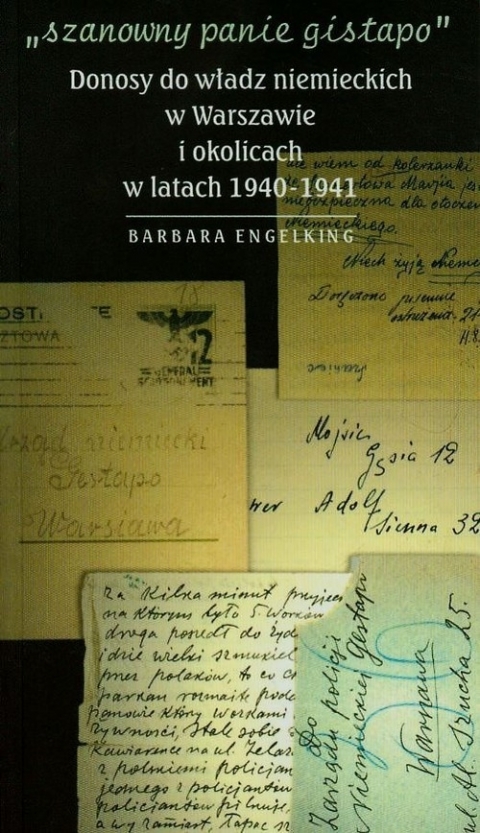 „szanowny panie gistapo”
Donosy do władz niemieckich
w Warszawie
i okolicach
w latach 1940-1941
BARBARA ENGELKING
nie wiem od koleżanki
niebezpieczna dla otoczenia
niemieckiego.
Niech żyją Niemcy
Doręczono
18
OST
ZTOWA
12
GENERAL
GOUVERNEMENT
Urząd niemiecki
Gestapo
Warsiawa
Mojsie
Gęsia 12
wer Adolf
Sienna 32
za kilka minut przyjec
na którym było 5. Worków
droga poszedł do żyd
idzie wielki szmukiel
przez polaków, to co
parkan rozmaite pode
panowie który workami
żywności, Stale sobie
Kawiarence na ul. Żelaz
z polskiemi policjan
jednego z policjantów
policjantów pilnuje,
a wy zamiast, łapać sz
Do
Zarządu policji
Niemieckiej Gestapo
Warszawa
ul. Al. Szucha 25.